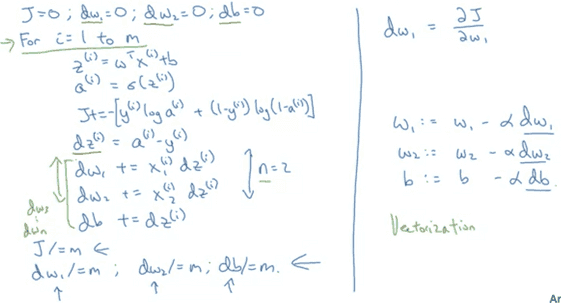 J=0 ; dw₁=0 ; dw₂=0 ; db=0
→ For i=1 to m
z⁽ⁱ⁾ = wᵀx⁽ⁱ⁾+b
a⁽ⁱ⁾ = σ(z⁽ⁱ⁾)
J+=-[y⁽ⁱ⁾ log a⁽ⁱ⁾ + (1-y⁽ⁱ⁾) log(1-a⁽ⁱ⁾)]
dz⁽ⁱ⁾ = a⁽ⁱ⁾-y⁽ⁱ⁾
dw₁ += x₁⁽ⁱ⁾ dz⁽ⁱ⁾
dw₂ += x₂⁽ⁱ⁾ dz⁽ⁱ⁾
n=2
db += dz⁽ⁱ⁾
dw₃
⋮
dwₙ
J/=m ←
dw₁/=m ; dw₂/=m ; db/=m. ←
↑ ↑ ↑
dw₁ = ∂J/∂w₁
w₁ := w₁ - α dw₁
w₂ := w₂ - α dw₂
b := b - α db.
Vectorization
Ar